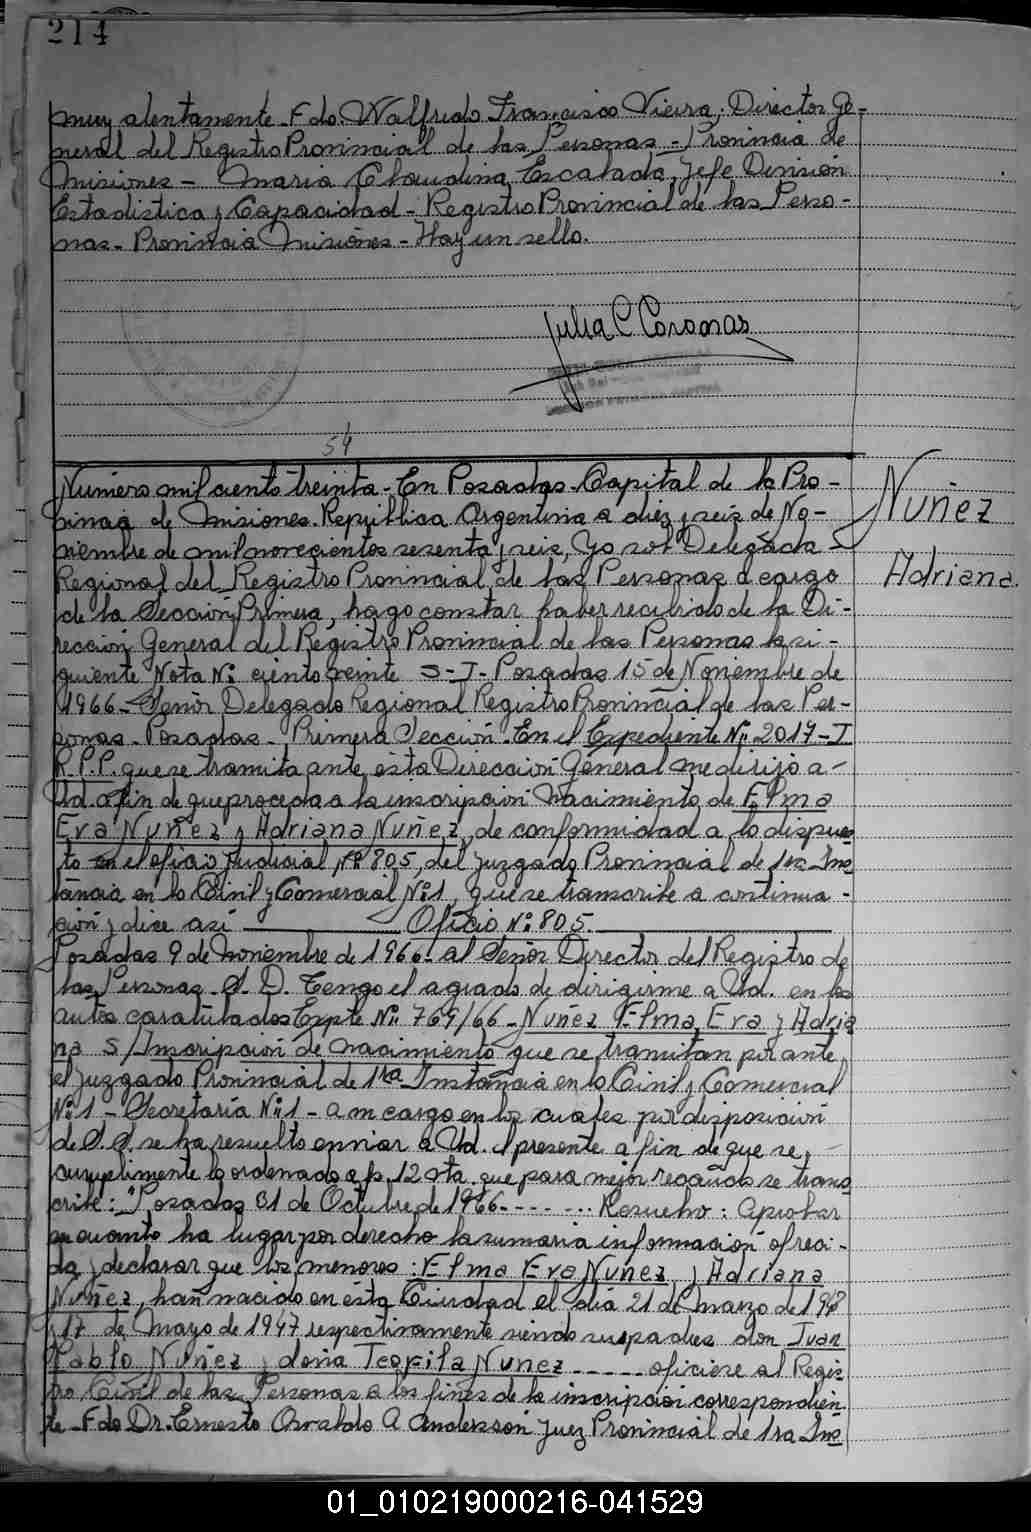 214
muy atentamente. Fdo. Walfredo Francisco Vieira. Director Ge-
neral del Registro Provincial de las Personas - Provincia de
Misiones - Maria Claudina Escalada, Jefe Division
Estadistica y Capacidad - Registro Provincial de las Perso-
nas - Provincia Misiones - Hay un sello.
Julia C
54
Numero mil ciento treinta - En Posadas - Capital de la Pro-
vincia de Misiones. República Argentina a diez y seis de No-
viembre de mil novecientos sesenta y seis, Yo Delegada
Regional del Registro Provincial de las Personas a cargo
de la Sección Primera, hago constar haber recibido de la Di-
rección General del Registro Provincial de las Personas la si-
guiente Nota Nº ciento veinte S-I- Posadas 15 de Noviembre de
1966 - Señor Delegado Regional Registro Provincial de las Per-
sonas - Posadas - Primera Sección - En el Expediente Nº 2017-I
R.P.P. que se tramita ante esta Dirección General me dirijo a
Ud. a fin de que proceda a la inscripción Nacimiento de Elma
Eva Nuñez y Adriana Nuñez, de conformidad a lo dispues
to en el oficio Judicial Nº 805, del Juzgado Provincial de 1ra Ins
tancia en lo Civil y Comercial Nº 1, que se transcribe a continua-
ción y dice así Oficio Nº 805.
Posadas 9 de Noviembre de 1966 - al Señor Director del Registro de
las Personas - S. D. Tengo el agrado de dirigirme a Ud. en los
autos caratulados Expte Nº 769/66 - Nuñez Elma Eva y Adria
na S/Inscripción de Nacimiento que se tramitan por ante
el Juzgado Provincial de 1ra Instancia en lo Civil y Comercial
Nº 1 - Secretaría Nº 1 - a mi cargo en los cuales por disposición
de S.S. se ha resuelto enviar a Ud. el presente a fin de que se
cumplimente lo ordenado a fs. 12 vta. que para mejor recaudo se trans
cribe: "Posadas 31 de Octubre de 1966 - - - ... Resuelvo: Aprobar
en cuanto ha lugar por derecho la sumaria información ofreci-
da y declarar que los menores: Elma Eva Nuñez y Adriana
Nuñez, han nacido en esta Ciudad el día 21 de Marzo de
y 17 de Mayo de 1947 respectivamente siendo sus padres don Juan
Pablo Nuñez y doña Teofila Nuñez - - - - - oficiese al Regis
tro Civil de las Personas a los fines de la inscripción correspondien
te - Fdo Dr. Ernesto Osvaldo A Andersson Juez Provincial de 1ra Ins
Nuñez
Adriana.
01_010219000216-041529